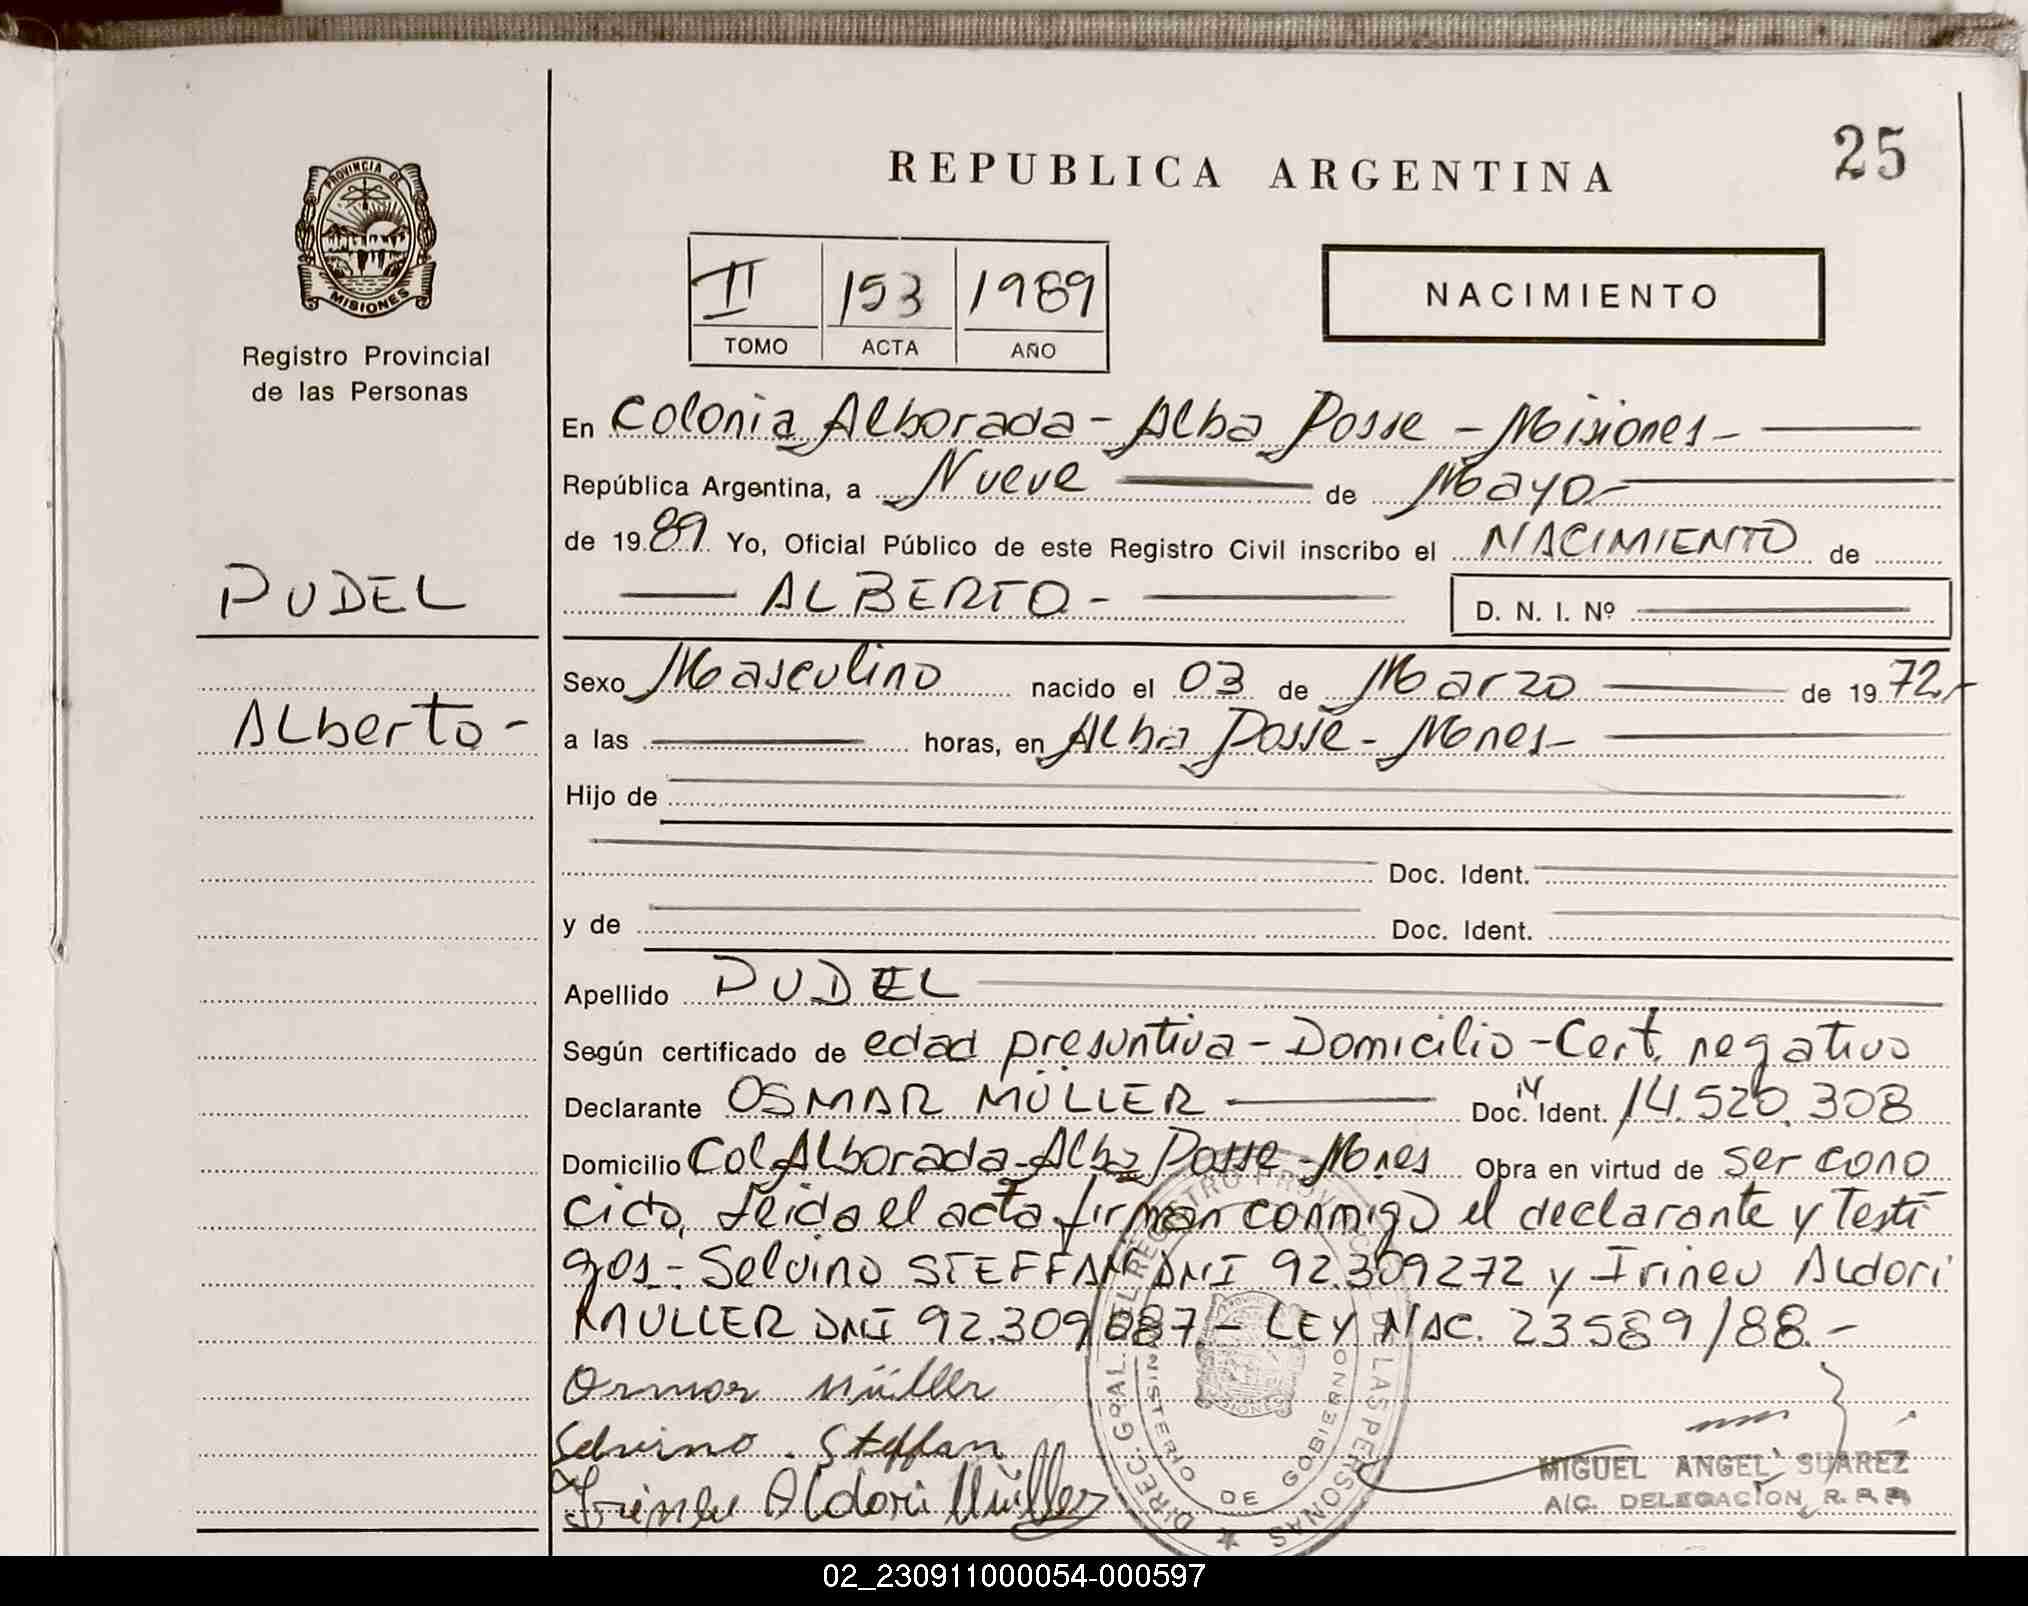 25
REPUBLICA ARGENTINA
PROVINCIA DE
MISIONES
Registro Provincial
de las Personas
II 153 1989
TOMO ACTA AÑO
NACIMIENTO
En Colonia Alborada - Alba Posse - Misiones -
República Argentina, a Nueve de Mayo -
de 1989. Yo, Oficial Público de este Registro Civil inscribo el NACIMIENTO de
PUDEL
ALBERTO -
D. N. I. Nº
Alberto -
Sexo Masculino nacido el 03 de Marzo de 1972 -
a las horas, en Alba Posse - Mones -
Hijo de
Doc. Ident.
y de Doc. Ident.
Apellido PUDEL
Según certificado de edad presuntiva - Domicilio - Cert. negativo
Declarante OSMAR MÜLLER Doc. Ident. 14.520.308
Domicilio Col Alborada - Alba Posse - Mones Obra en virtud de ser cono
cido, leida el acta firman conmigo el declarante y testi
gos - Selvino STEFFAN DNI 92.309272 y Irineu Aldori
MULLER DNI 92.309.087 - LEY NAC. 23589/88. -
Osmar Müller
Selvino Steffan
Irineu Aldori Müller
DIREC. GRAL. DEL REGISTRO PROVINCIAL DE LAS PERSONAS
MINISTERIO DE GOBIERNO
MIGUEL ANGEL SUAREZ
A/C. DELEGACION R. P. P.
02_230911000054-000597